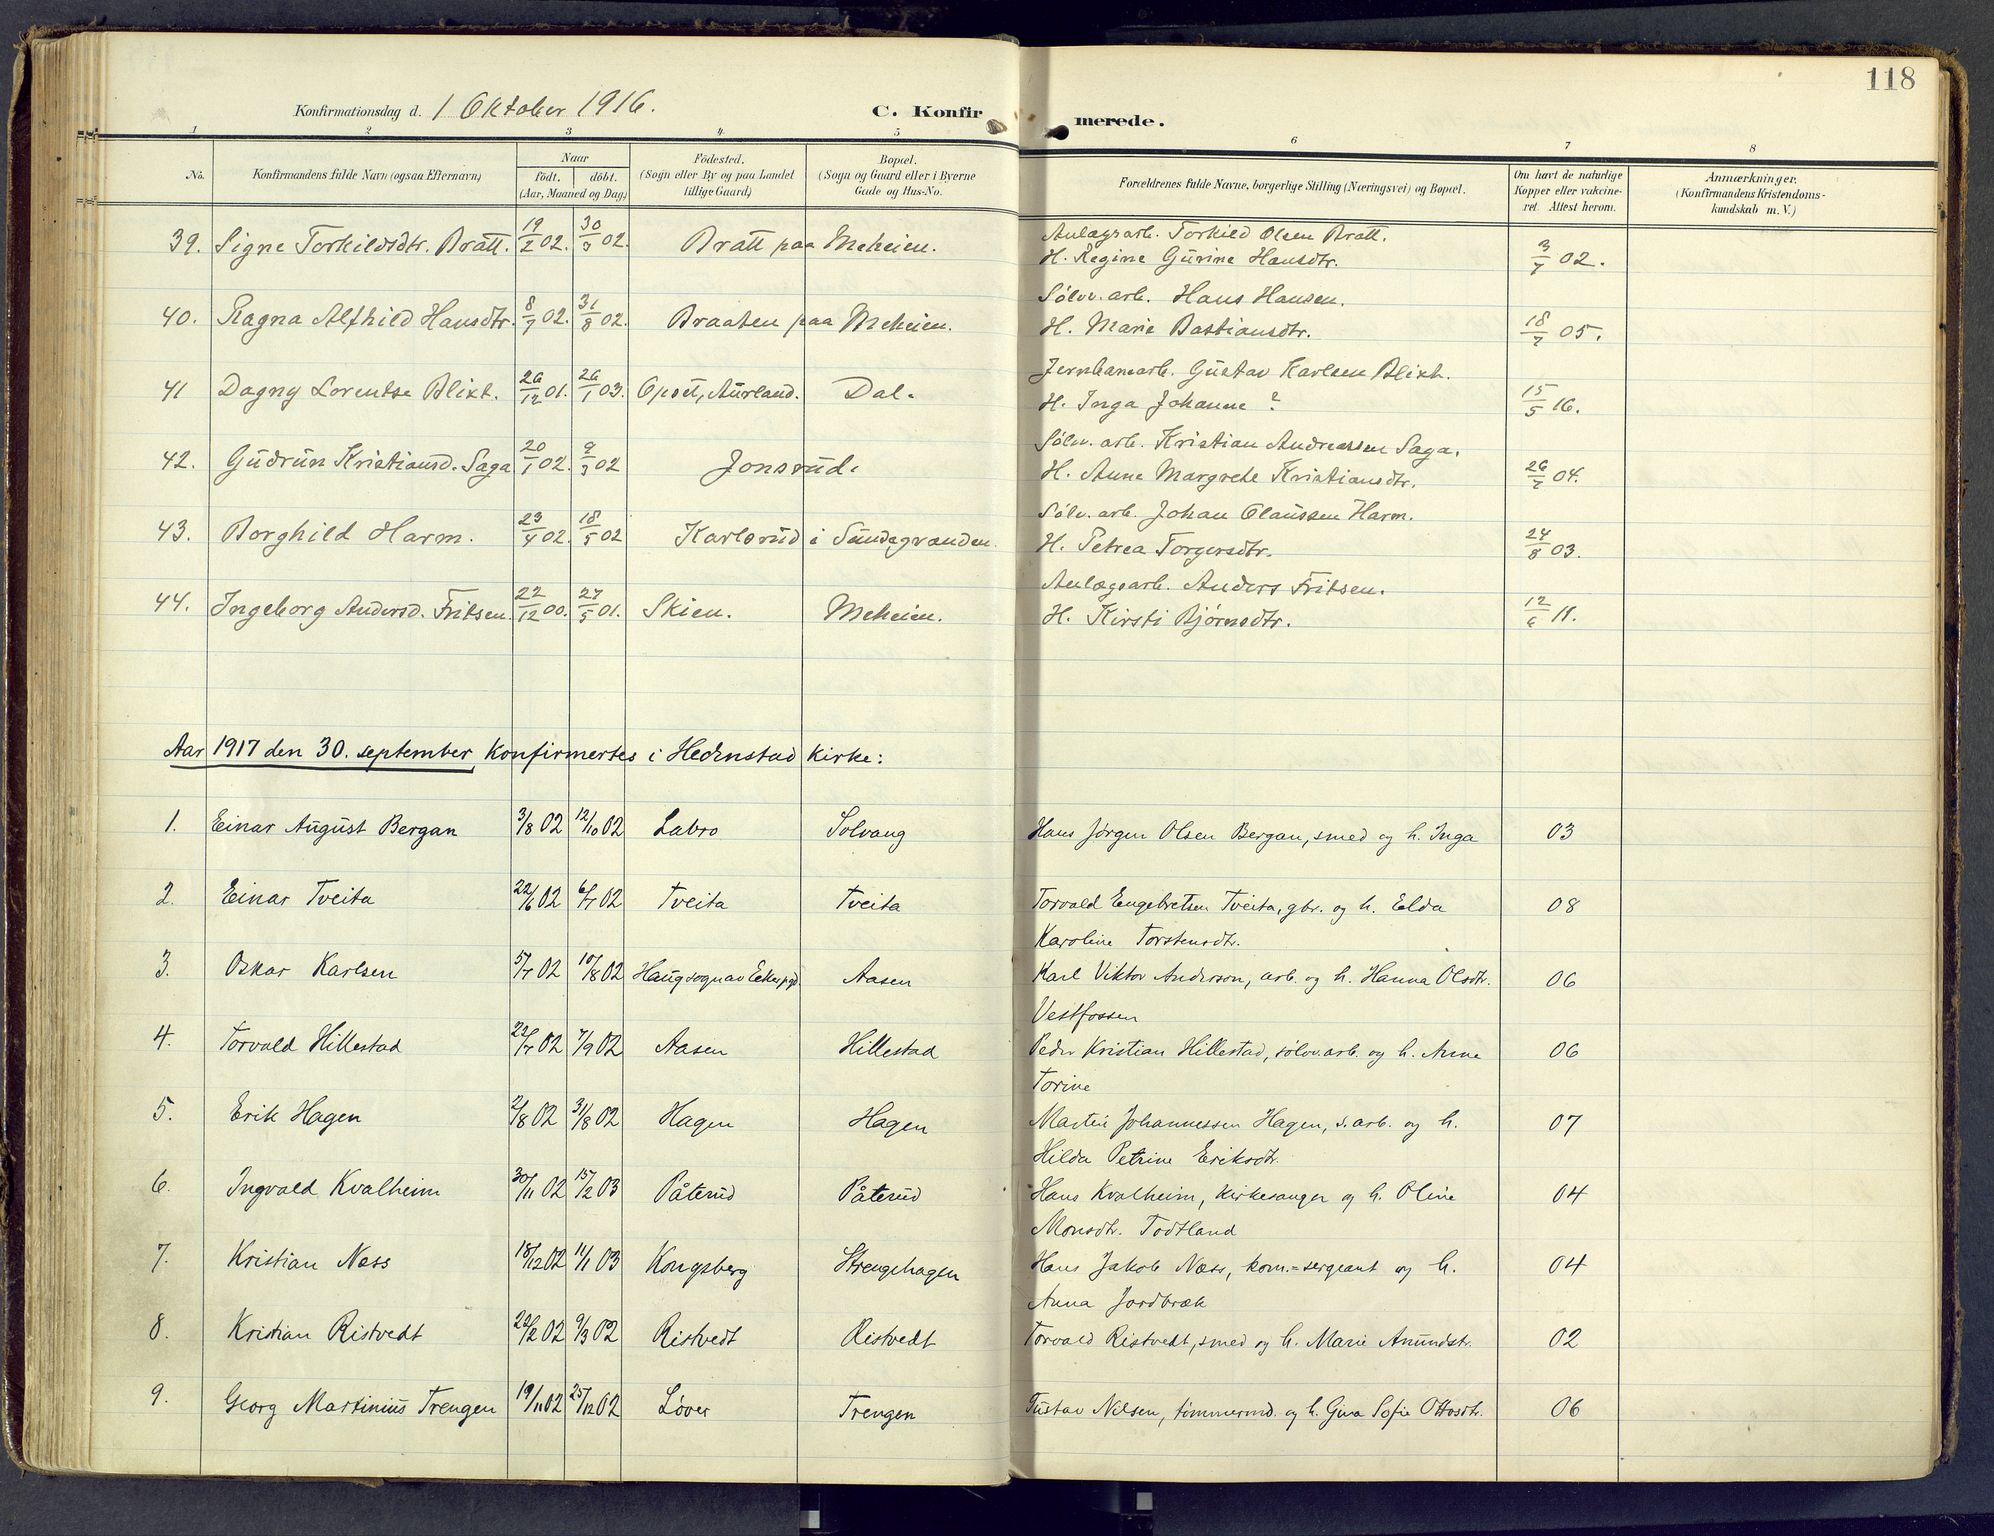 118
Konfirmationsdag d. 1 Oktober 1916. C. Konfir merede.
1 2 3 4 5 6 7 8
No. Konfirmandens fulde Navn (ogsaa Efternavn) Naar født. døbt. (Aar, Maaned og Dag) Födested. (Sogn eller By og paa Landet tillige Gaard) Bopæl. (Sogn og Gaard eller i Byerne Gade og Hus-No. Forældrenes fulde Navne, borgerlige Stilling (Næringsvei) og Bopæl. Om havt de naturlige Kopper eller vakcineret. Attest herom. Anmærkninger. (Konfirmandens Kristendomskundskab m. V.)
39. Signe Torkildsdtr. Bratt. 19/2 02. 30/3 02. Bratt paa Meheien. Anlægsarb. Torkild Olsen Bratt.
H. Regine Gurine Hansdtr. 3/7 02.
40. Ragna Alfhild Hansdtr. 8/7 02. 31/8 02. Braaten paa Meheien. Sølvv. arb. Hans Hansen.
H. Marie Bastiansdtr. 18/7 05.
41 Dagny Lorentse Blixt. 26/12 01. 26/1 03. Opset, Aurland. Dal. Jernbanearb. Gustav Karlsen Blixt.
H. Inga Johanne ? 15/5 16.
42. Gudrun Kristiansd. Saga 20/1 02. 9/3 02 Jonsrud. Sølvv. arb. Kristian Andreassen Saga.
H. Anne Margrete Kristiansdtr. 26/7 04.
43. Borghild Harm. 23/4 02. 18/5 02 Karlsrud i Sundsgrænden. Sølvv. arb. Johan Olaussen Harm.
H. Petrea Torgersdtr. 24/8 03.
44. Ingeborg Andersd. Fritsen. 22/12 00. 27/5 01. Skien. Meheien. Anlægsarb. Anders Fritsen.
H. Kirsti Bjørnsdtr. 12/6 11.
Aar 1917 den 30. september konfirmertes i Hedenstad kirke:
1. Einar August Bergan 3/8 02 12/10 02 Labro Solvang Hans Jørgen Olsen Bergan, smed og h. Inga 03
2. Einar Tveita 22/6 02 6/7 02 Tveita Tveita Torvald Engebretsen Tveita, gbr. og h. Elda 08
Karoline Torstensdtr.
3. Oskar Karlsen 5/7 02 10/8 02 Haug sogn av Eker pgd. Aasen Karl Viktor Anderson, arb. og h. Hanna Olsdtr. 06
Vestfossen
4. Torvald Hillestad 22/7 02 7/9 02 Aasen Hillestad Peder Kristian Hillestad, sølvv. arb. og h. Anne 06
Torine
5. Erik Hagen 2/8 02 31/8 02 Hagen Hagen Martin Johannessen Hagen, s. arb. og h. 07
Hilda Petrine Eriksdtr.
6. Ingvald Kvalheim 30/11 02 15/2 03 Påterud Påterud Hans Kvalheim, kirkesanger og h. Oline 04
Monsdtr. Todtland
7. Kristian Næss 18/12 02 11/1 03 Kongsberg Strengehagen Hans Jakob Næss, kom.=sergeant og h. 04
Anna Jordbræk
8. Kristian Ristvedt 22/2 02 9/3 02 Ristvedt Ristvedt Torvald Ristvedt, smed og h. Marie Anundsdtr. 02
9. Georg Martinius Trengen 19/11 02 25/12 02 Løver Trengen Gustav Nilsen, tømmermd. og h. Gina Sofie Ottosdtr. 06